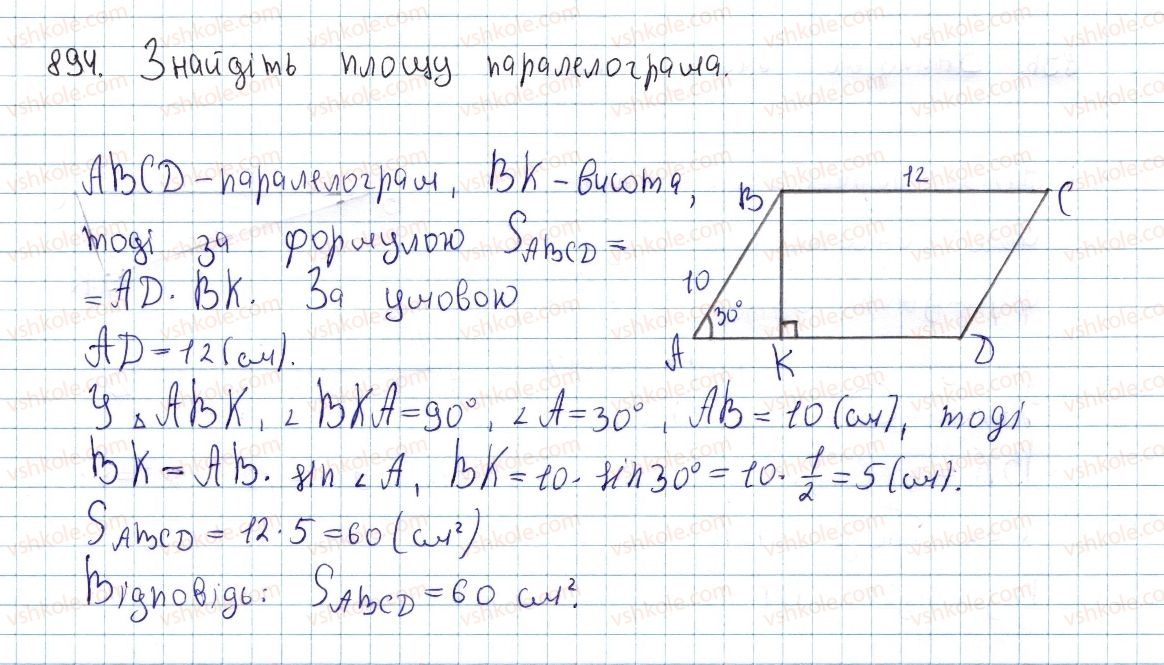 894. Знайдіть площу паралелограма.
ABCD – паралелограм, BK – висота,
тоді за формулою S_ABCD =
= AD · BK. За умовою
AD = 12 (см).
У △ABK, ∠BKA = 90°, ∠A = 30°, AB = 10 (см), тоді
BK = AB · sin∠A, BK = 10 · sin30° = 10 · 1/2 = 5 (см).
S_ABCD = 12 · 5 = 60 (см²)
Відповідь: S_ABCD = 60 см².
12
B
C
10
30°
A
K
D
vshkole.com